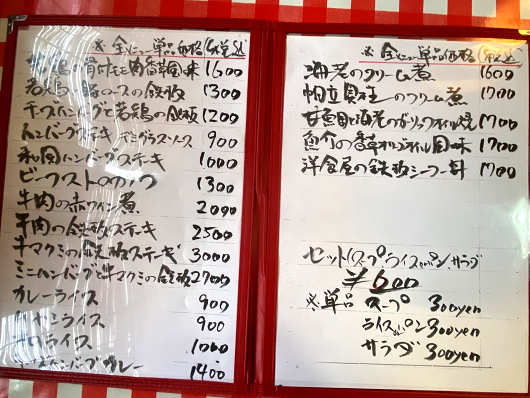 ※ 全メニュー単品価格(税込)
若鶏の骨付もも肉香草風味 1600
若鶏ロースの鉄板 1300
チーズハンバーグと若鶏 1200
ハンバーグステーキ デミグラスソース 900
和風ハンバーグステーキ 1000
ビーフストロガノフ 1300
牛肉の赤ワイン煮 2090
牛肉の鉄板ステーキ 2500
牛マクミの鉄板ステーキ 3000
ミニハンバーグと牛マクミの鉄板 2700
カレーライス 900
ハヤシライス 900
ライス 1000
ハンバーグカレー 1400
※ 全メニュー単品価格(税込)
海老のクリーム煮 1600
帆立貝柱のクリーム煮 1700
甘鯛と海老のガーリックオイル焼 1700
魚介の香草オイル風味 1700
洋食屋の鉄板シーフード 1700
セット(スープ ライスorパン サラダ
¥600
※単品 スープ 300yen
ライスorパン 300yen
サラダ 300yen